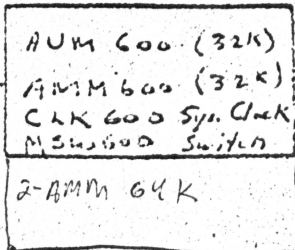 AUM 600 (32K)
AMM 600 (32K)
CLK 600 Syn. Clock
MSW600 Switch
2-AMM 64K